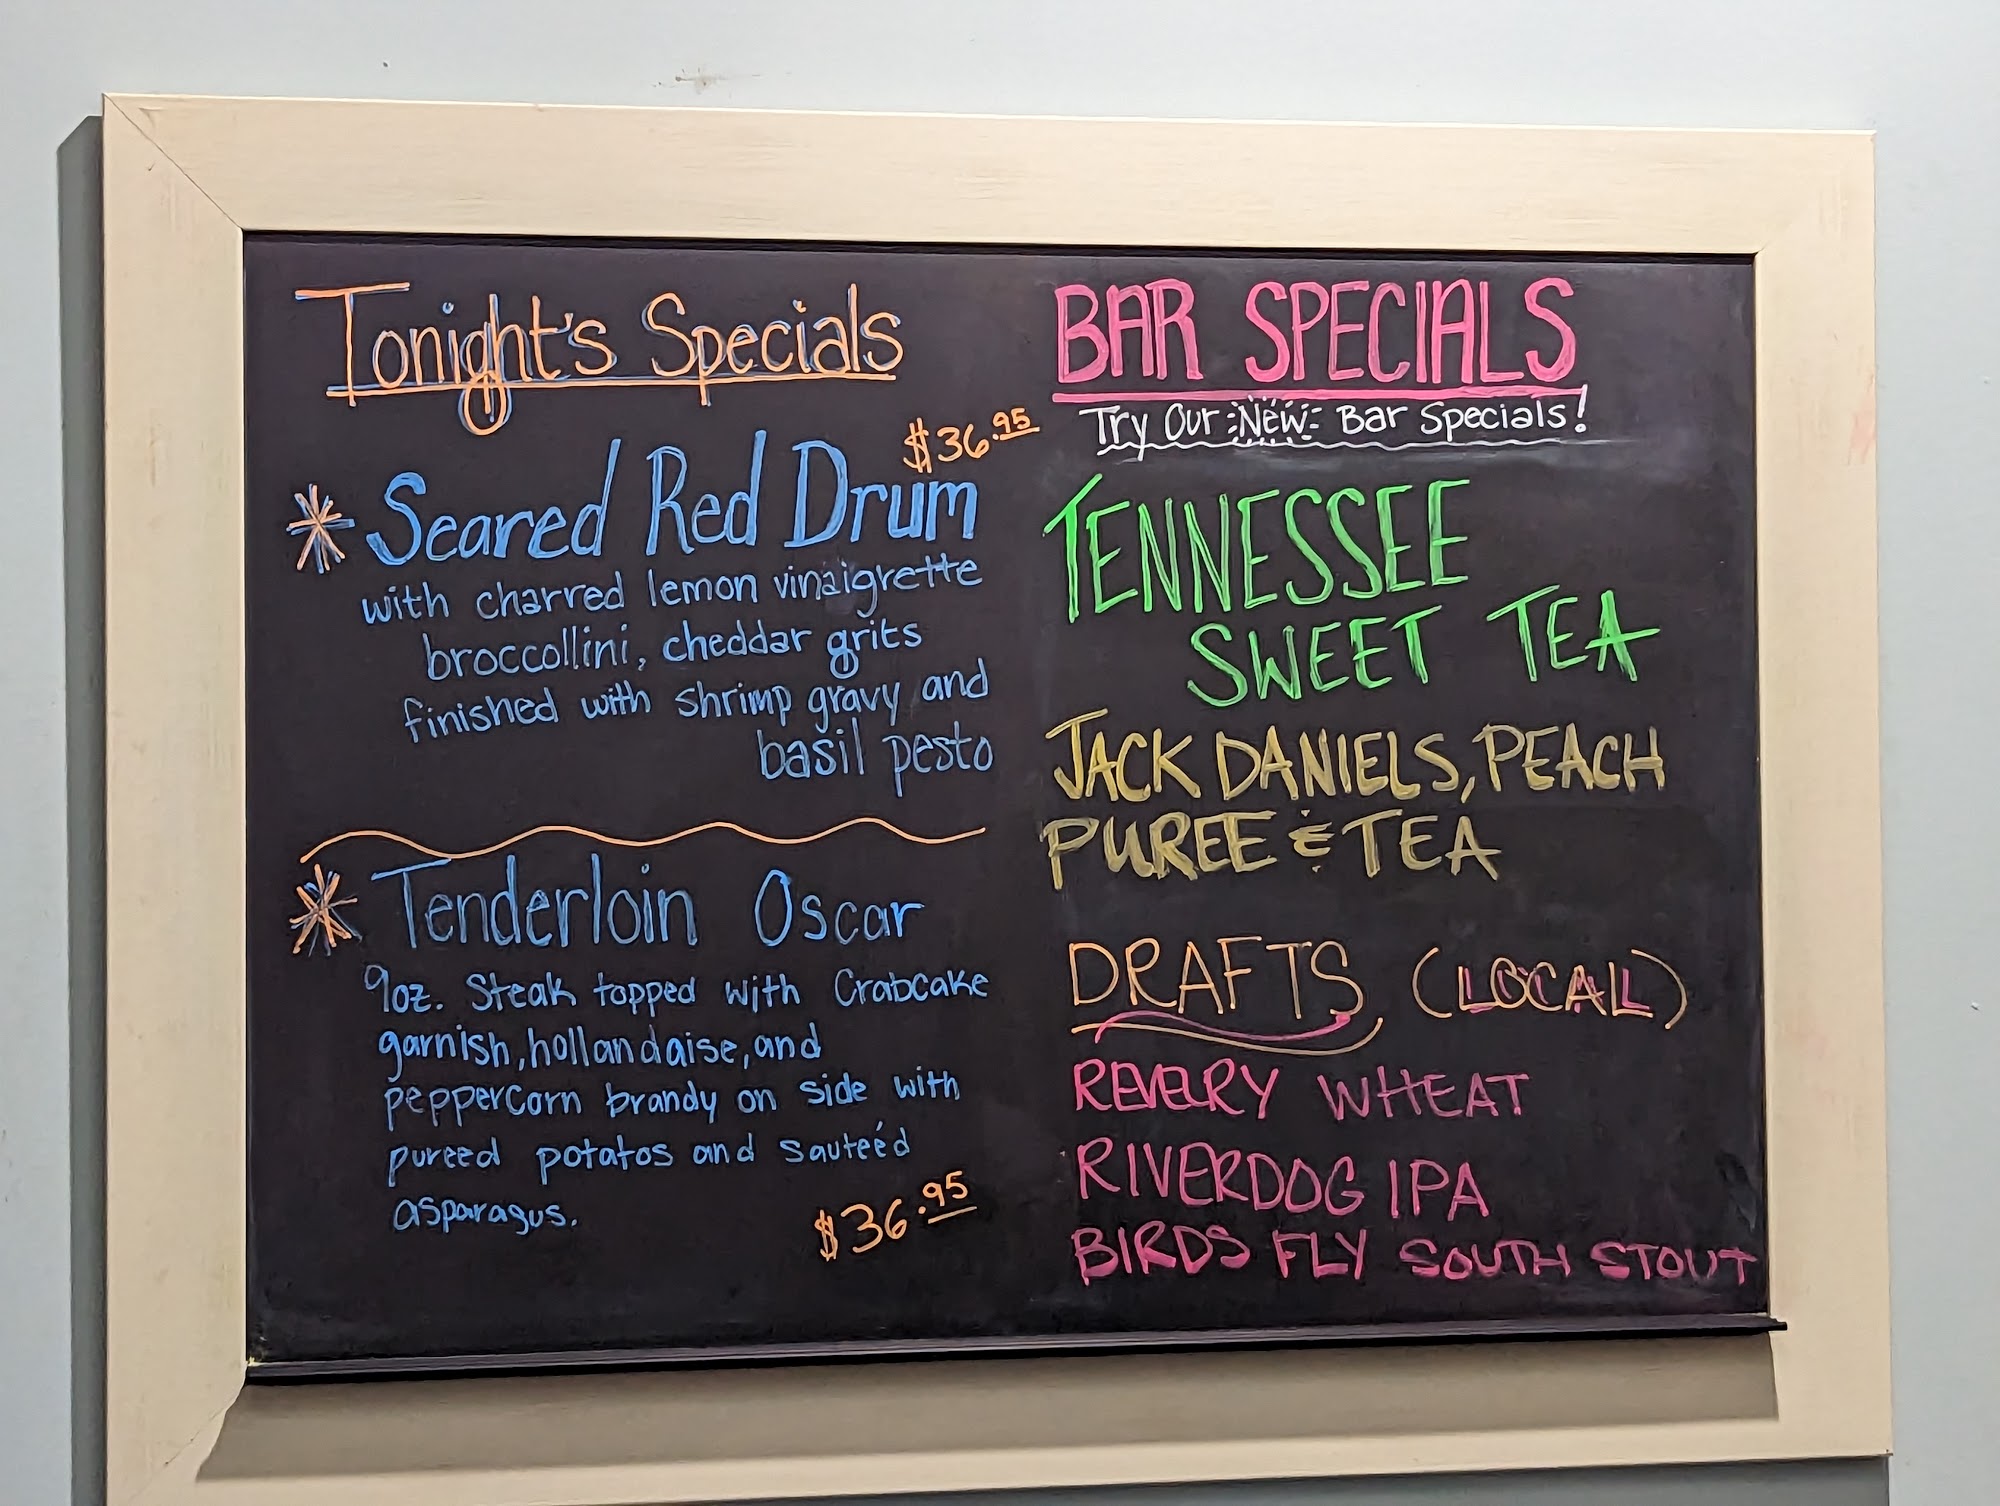 Tonight's Specials
$36.95
* Seared Red Drum
with charred lemon vinaigrette
broccollini, cheddar grits
finished with shrimp gravy and
basil pesto
* Tenderloin Oscar
9oz. Steak topped with Crabcake
garnish, hollandaise, and
peppercorn brandy on side with
pureed potatos and sauteéd
asparagus.
$36.95
BAR SPECIALS
Try Our New Bar Specials!
TENNESSEE
SWEET TEA
JACK DANIELS, PEACH
PUREE & TEA
DRAFTS (LOCAL)
REVELRY WHEAT
RIVERDOG IPA
BIRDS FLY SOUTH STOUT